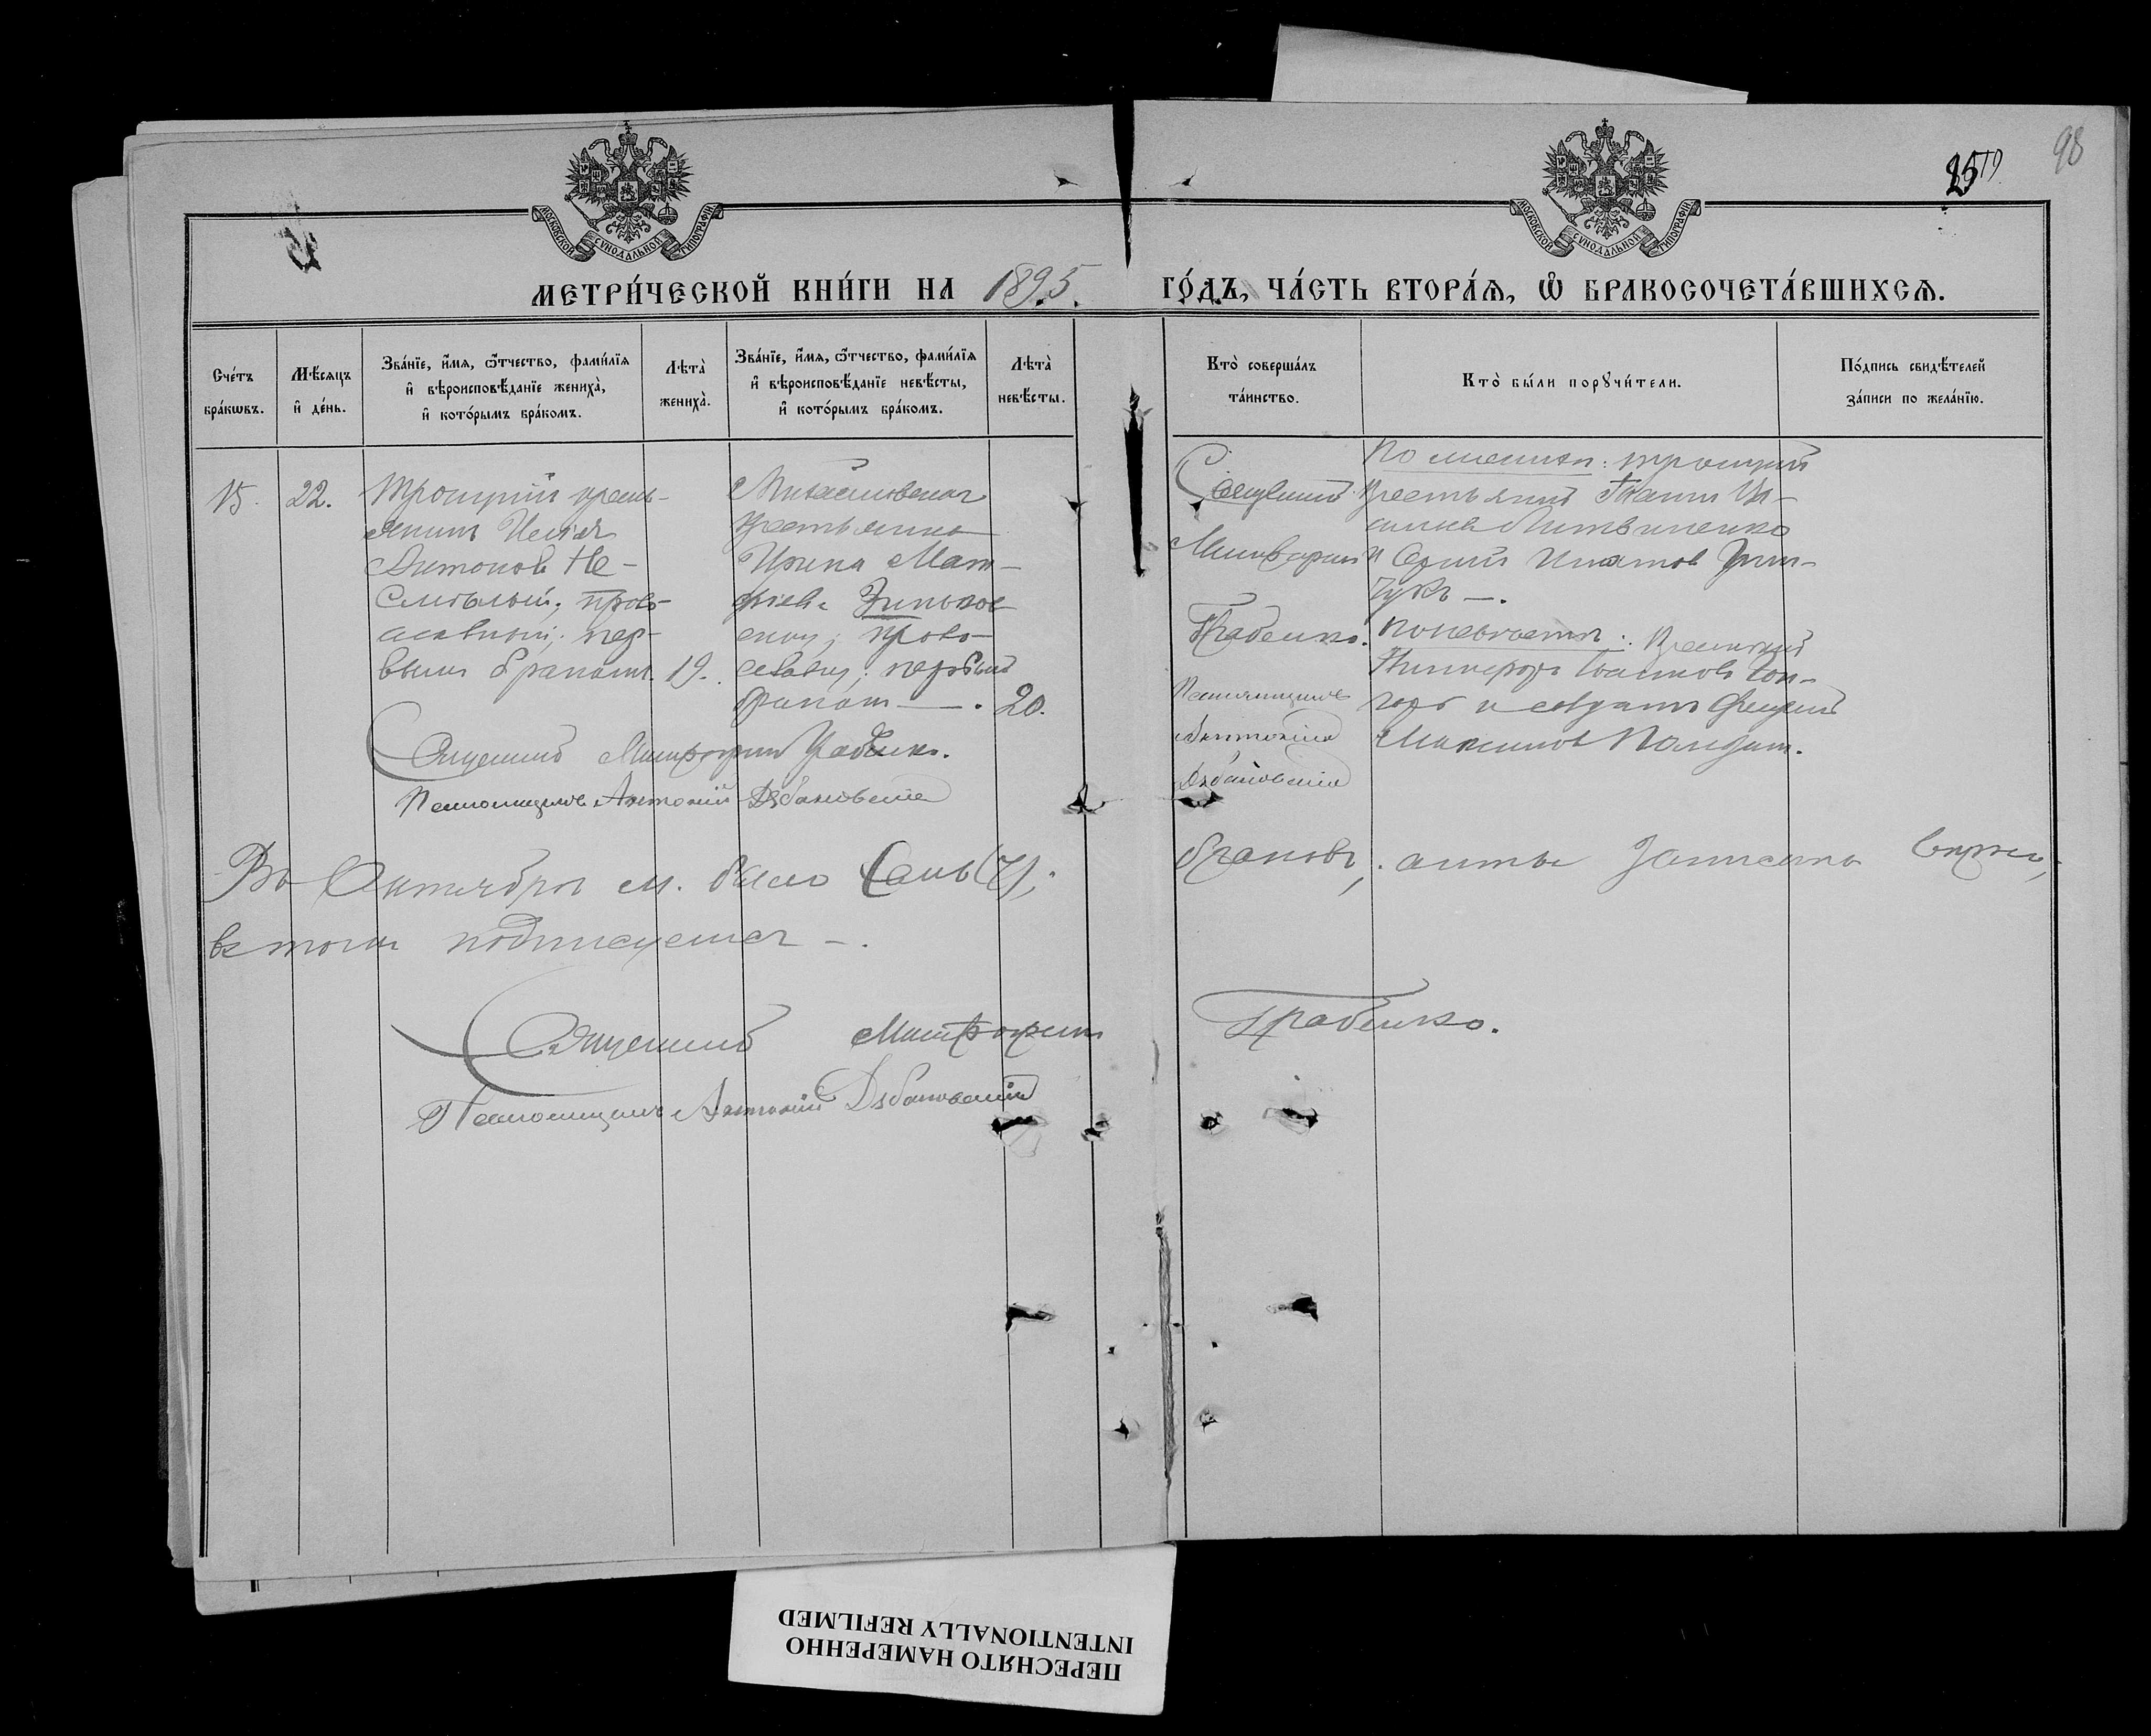 98
25
МОСКОВСКОЙ СѴНОДАЛЬНОЙ ТИПОГРАФІИ
МОСКОВСКОЙ СѴНОДАЛЬНОЙ ТИПОГРАФІИ
МЕТРИ́ЧЕСКОЙ КНИ́ГИ НА 1895. ГО́ДЪ, ЧА́СТЬ ВТОРА́Ѧ, Ѽ БРАКОСОЧЕТА́ВШИХСѦ.
Сче́тъ бра́кѡвъ.
Мѣ́сѧцъ и҆ де́нь.
Зва́нїе, и҆́мѧ, ѻ҆́тчество, фами́лїѧ
и҆ вѣроисповѣ́данїе жениха̀,
и҆ кото́рымъ бра́комъ.
Лѣта̀
жениха̀.
Зва́нїе, и҆́мѧ, ѻ҆́тчество, фами́лїѧ
и҆ вѣроисповѣ́данїе невѣ́сты,
и҆ кото́рымъ бра́комъ.
Лѣта̀
невѣ́сты.
Кто̀ соверша́лъ
та́инство.
Кто̀ бы́ли порꙋчи́тели.
По́дпись свидѣ́телей
за́писи по жела́нїю.
15.
22.
Троицкій кресть-
янинъ Илія
Антоновъ Не-
смѣлый, право-
славный; пер-
вымъ бракомъ.
19.
Михайловская
крестьянка
Ирина Мат-
фіева Зинков-
ская, право-
славная; первымъ
бракомъ —.
20.
Священникъ
Митрофанъ
Грабенко.
Псаломщикъ
Антоній
Дзбановскій
По женихѣ: троицкій
крестьянинъ
Литвиненко
и Игнатовъ
чукъ —.
По невѣстѣ: крестьянинъ
Никифоръ
и солдатъ
Максимовъ
Священникъ Митрофанъ Грабенко.
Псаломщикъ Антоній Дзбановскій
Въ Октябрѣ м. было Семь (7) браковъ; акты записаны вѣрно,
въ томъ подписуемся —.
Священникъ Митрофанъ Грабенко.
Псаломщикъ Антоній Дзбановскій
ПЕРЕСНЯТО НАМЕРЕННО
INTENTIONALLY REFILMED